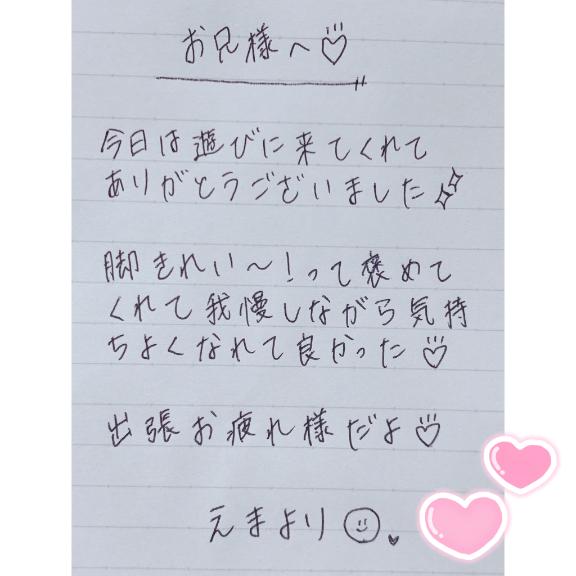 お兄様へ♡
今日は遊びに来てくれて
ありがとうございました✨
脚きれい〜!って褒めて
くれて我慢しながら気持
ちよくなれて良かった♡
出張お疲れ様だよ♡
えまより☺♥